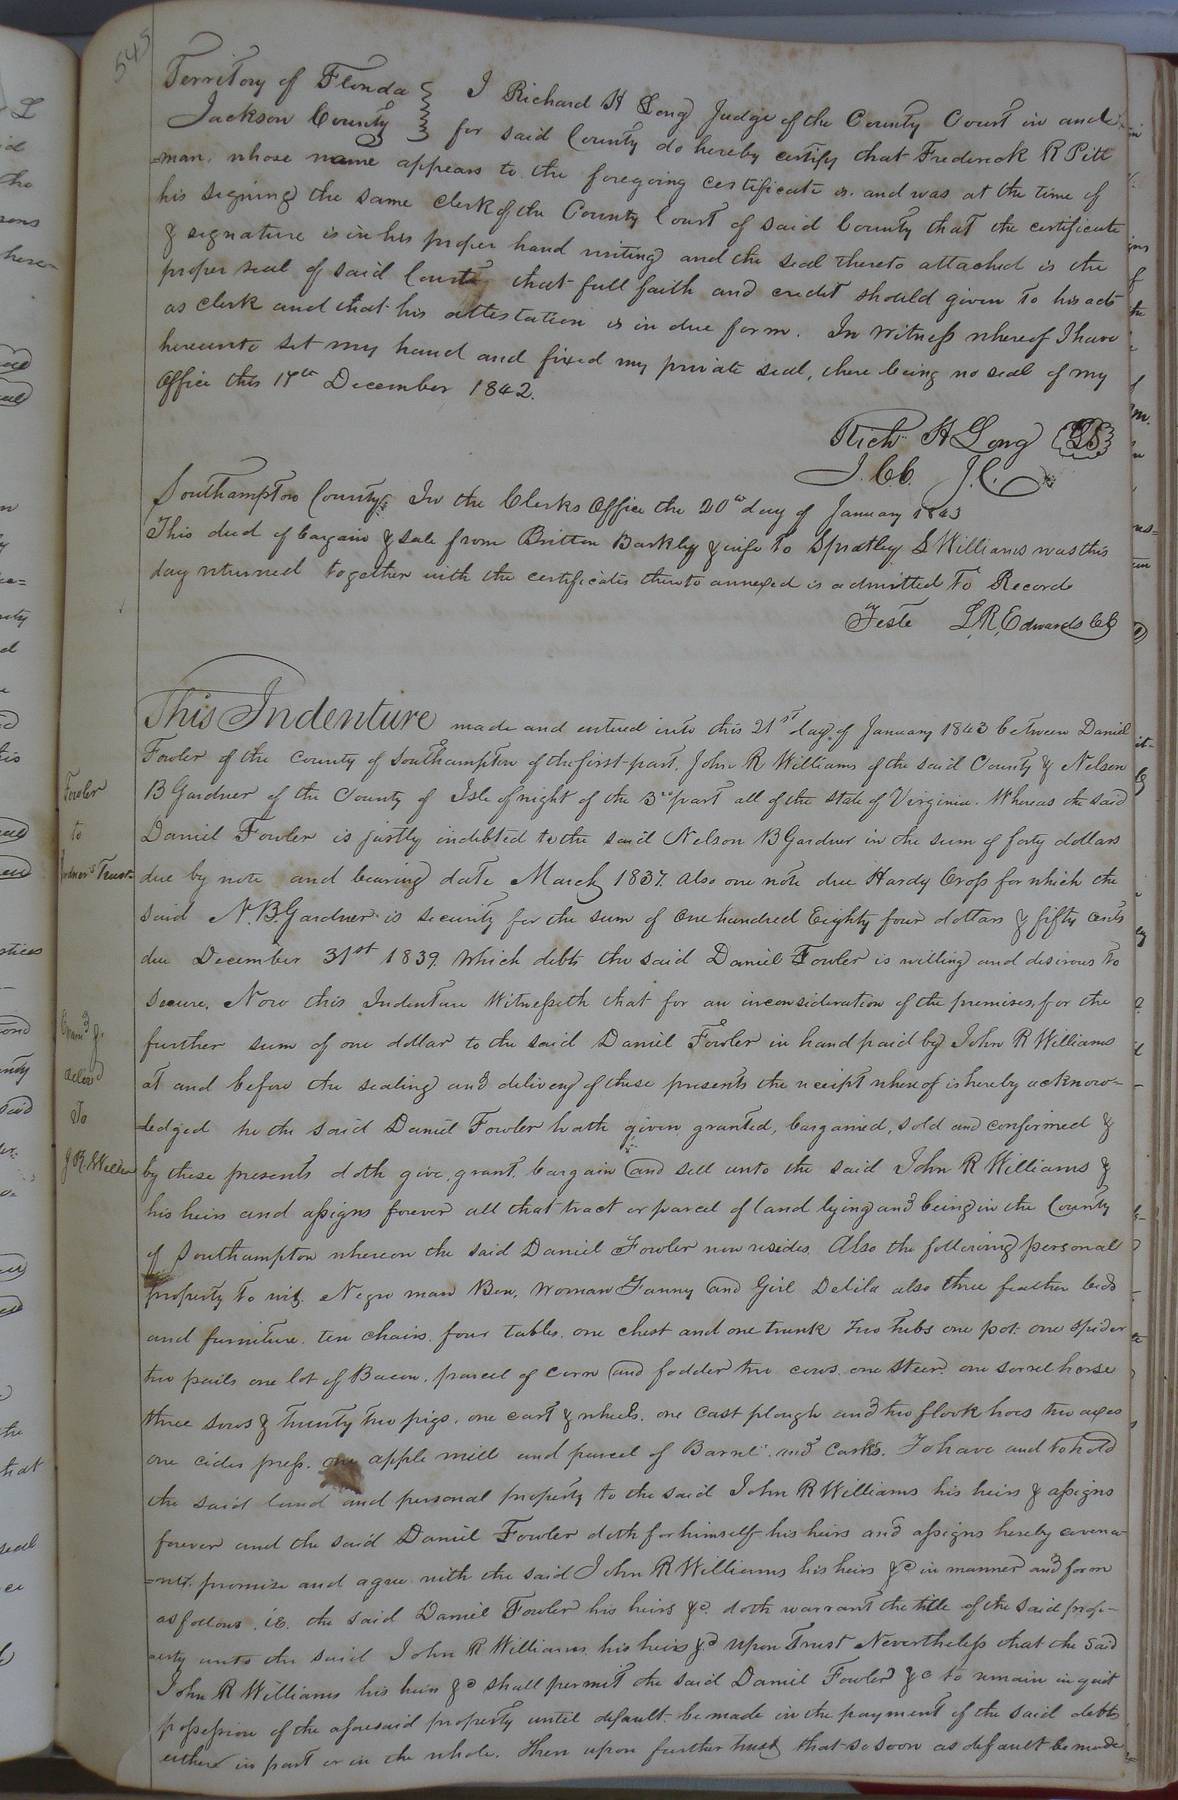 545
Territory of Florida } I Richard H Long Judge of the County Court in and
Jackson County } for said County do hereby certify that Frederick R Pitt
=man, whose name appears to the foregoing certificate is and was at the time of
his signing the same Clerk of the County Court of said County that the certificate
& signature is in his proper hand writing and the seal thereto attached is the
proper seal of said Court that full faith and credit should given to his acts
as clerk and that his attestation is in due form. In Witness whereof I have
hereunto set my hand and fixed my private seal, there being no seal of my
Office this 17th December 1842.
Rich. H Long LS
J. C. C. J. C.
Southampton County; In the Clerks Office the 20th day of January 1843
This deed of bargain & sale from Britton Barkley & wife to Spratley S Williams was this
day returned together with the certificates thereto annexed is admitted to Record
Teste L. R. Edwards CC
Fowler
to
Gardner's Trust
Exam'd &
deliver'd
To
J. R. Williams
This Indenture made and entered into this 21st day of January 1843 between Daniel
Fowler of the county of Southampton of the first part, John R Williams of the said County & Nelson
B Gardner of the County of Isle of night of the 3rd part all of the State of Virginia. Whereas the said
Daniel Fowler is justly indebted to the said Nelson B Gardner in the sum of forty dollars
due by note and bearing date March 1837. Also one note due Hardy Cross for which the
said N. B. Gardner is security for the sum of One hundred Eighty four dollars & fifty cents
due December 31st 1839. Which debts the said Daniel Fowler is willing and desirous to
secure. Now this Indenture Witnesseth that for an inconsideration of the premises, for the
further sum of one dollar to the said Daniel Fowler in hand paid by John R Williams
at and before the sealing and delivery of these presents the receipt whereof is hereby acknow=
=ledged he the said Daniel Fowler hath given, granted, bargained, sold and confirmed &
by these presents doth give, grant, bargain and sell unto the said John R Williams &
his heirs and assigns forever all that tract or parcel of land lying and being in the County
of Southampton whereon the said Daniel Fowler now resides. Also the following personal
property to wit. Negro man Ben, Woman Fanny and Girl Delila also three feather beds
and furniture, ten chairs, four tables, one chest and one trunk Two tubs one pot, one spider
two pails one lot of Bacon, parcel of corn and fodder two cows, one steer, one sorrel horse
three sows & twenty two pigs, one cart & wheels, one cast plough and two flook hoes two axes
one cider press, one apple mill and parcel of Barrels and Casks. To have and to hold
the said land and personal property to the said John R Williams his heirs & assigns
forever and the said Daniel Fowler doth for himself his heirs and assigns hereby covena=
=nt, promise and agree with the said John R Williams his heirs &c in manner and form
as follows, ie. the said Daniel Fowler his heirs &c. doth warrant the title of the said prop=
=erty unto the said John R Williams, his heirs &c Upon Trust Nevertheless that the said
John R Williams his heirs &c shall permit the said Daniel Fowler &c to remain in quiet
possession of the aforesaid property until default be made in the payment of the said debts
either in part or in the whole. Then upon further trust that so soon as default be made